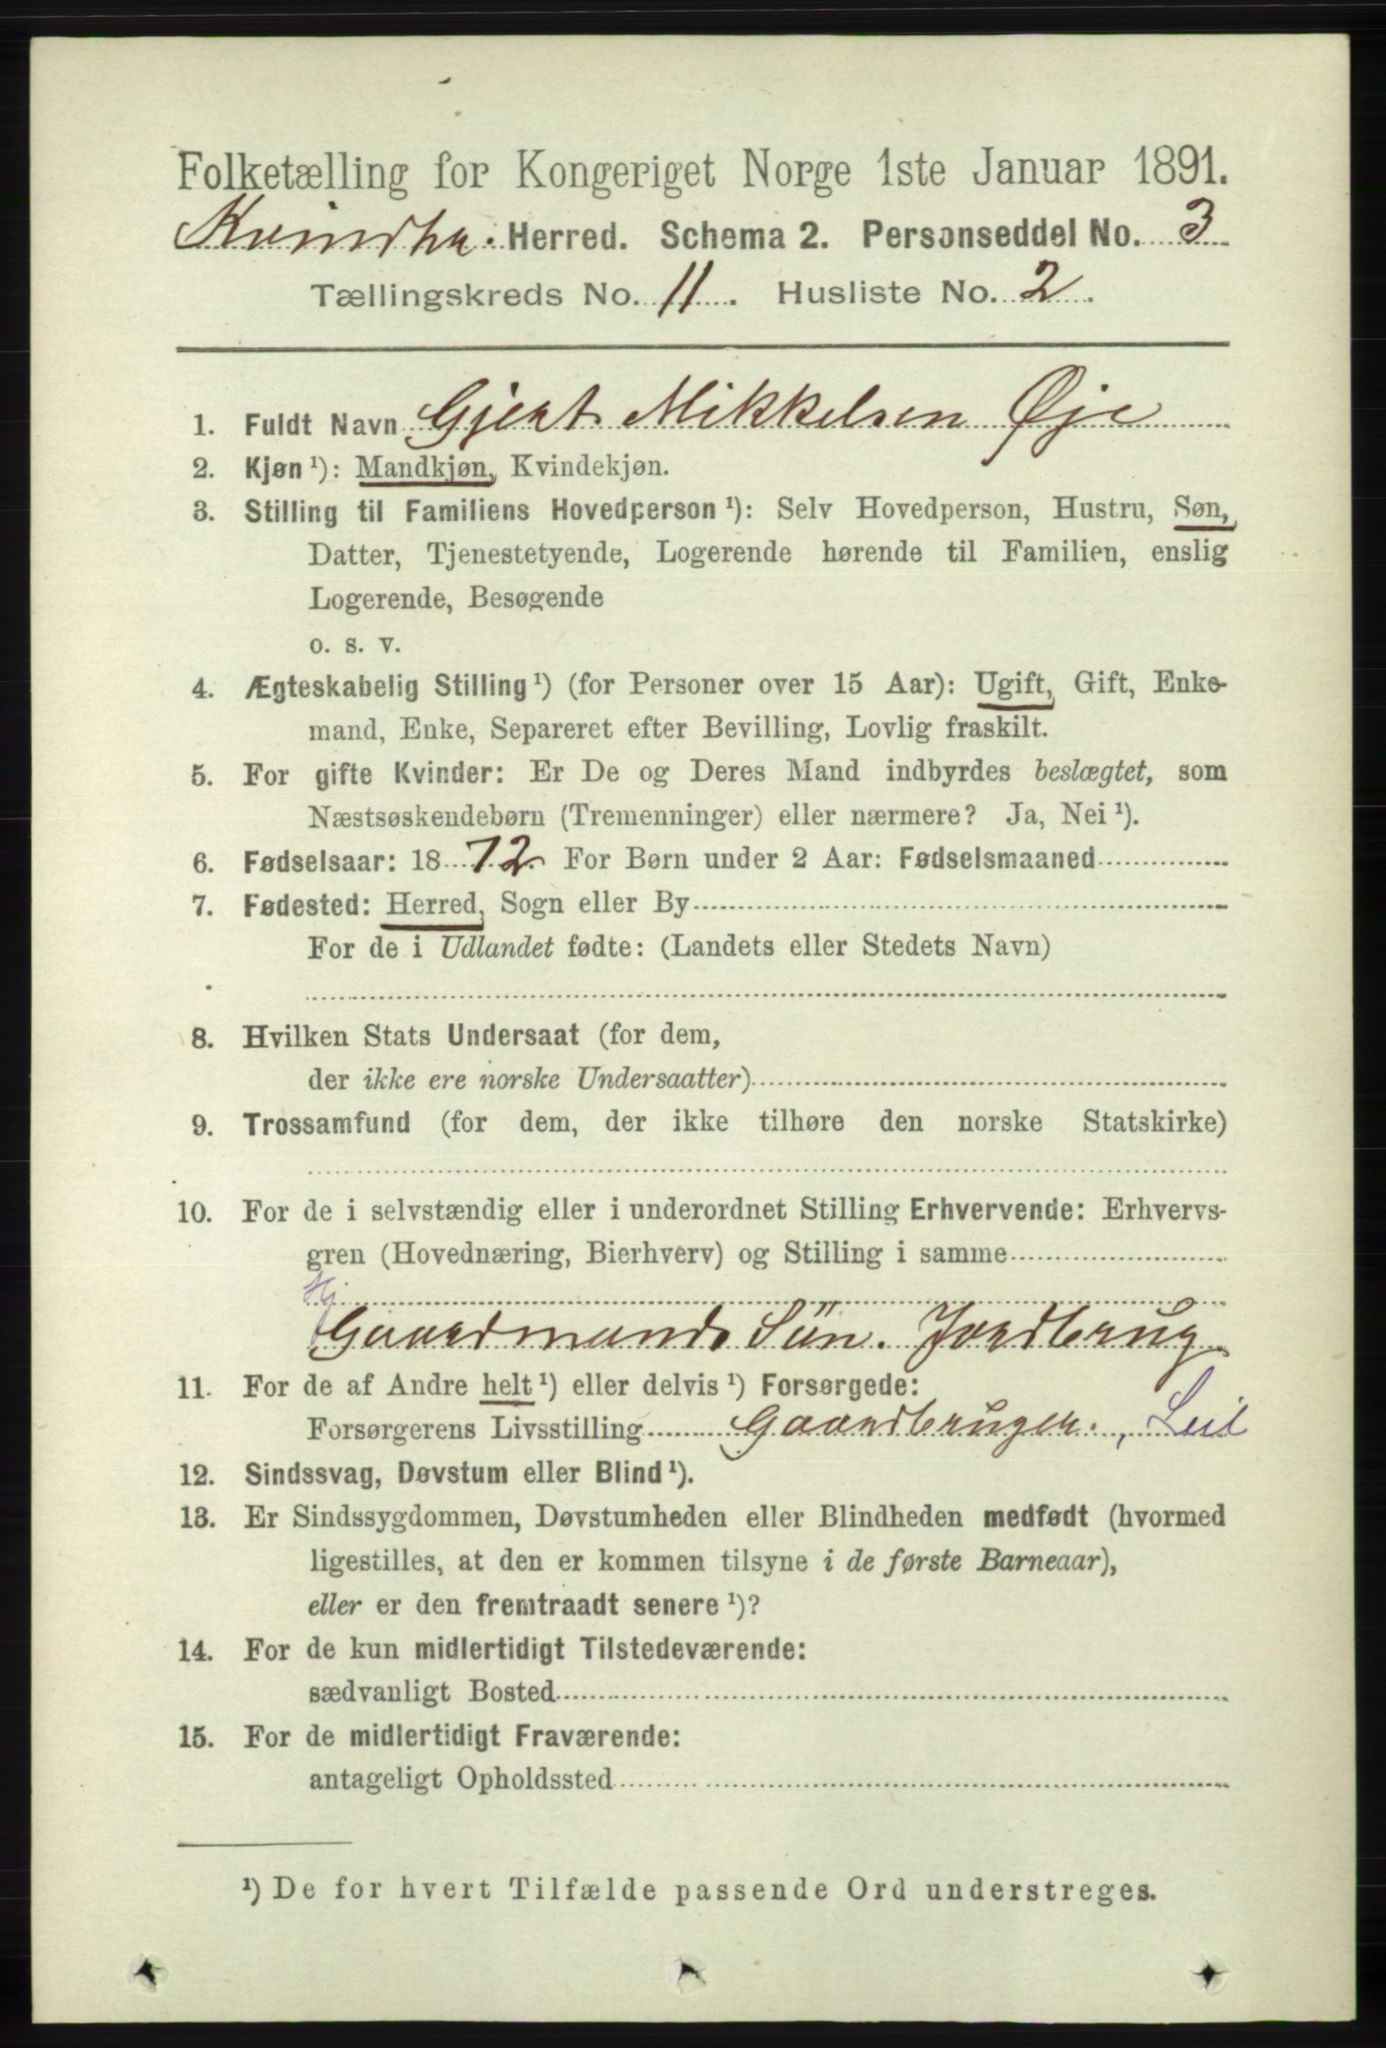 Folketælling for Kongeriget Norge 1ste Januar 1891.
Kvindhr. Herred. Schema 2. Personseddel No. 3
Tællingskreds No. 11. Husliste No. 2.
1. Fuldt Navn Gjert Mikkelsen Øje
2. Kjøn ¹): Mandkjøn, Kvindekjøn.
3. Stilling til Familiens Hovedperson ¹): Selv Hovedperson, Hustru, Søn,
Datter, Tjenestetyende, Logerende hørende til Familien, enslig
Logerende, Besøgende
o. s. v.
4. Ægteskabelig Stilling ¹) (for Personer over 15 Aar): Ugift, Gift, Enke-
mand, Enke, Separeret efter Bevilling, Lovlig fraskilt.
5. For gifte Kvinder: Er De og Deres Mand indbyrdes beslægtet, som
Næstsøskendebørn (Tremenninger) eller nærmere? Ja, Nei ¹).
6. Fødselsaar: 1872. For Børn under 2 Aar: Fødselsmaaned
7. Fødested: Herred, Sogn eller By
For de i Udlandet fødte: (Landets eller Stedets Navn)
8. Hvilken Stats Undersaat (for dem,
der ikke ere norske Undersaatter)
9. Trossamfund (for dem, der ikke tilhøre den norske Statskirke)
10. For de i selvstændig eller i underordnet Stilling Erhvervende: Erhvervs-
gren (Hovednæring, Bierhverv) og Stilling i samme
Hj
Gaardmands Sün. Jordbrug
11. For de af Andre helt ¹) eller delvis ¹) Forsørgede:
Forsørgerens Livsstilling Gaardbruger., Leil
12. Sindssvag, Døvstum eller Blind ¹).
13. Er Sindssygdommen, Døvstumheden eller Blindheden medfødt (hvormed
ligestilles, at den er kommen tilsyne i de første Barneaar),
eller er den fremtraadt senere ¹)?
14. For de kun midlertidigt Tilstedeværende:
sædvanligt Bosted
15. For de midlertidigt Fraværende:
antageligt Opholdssted
¹) De for hvert Tilfælde passende Ord understreges.